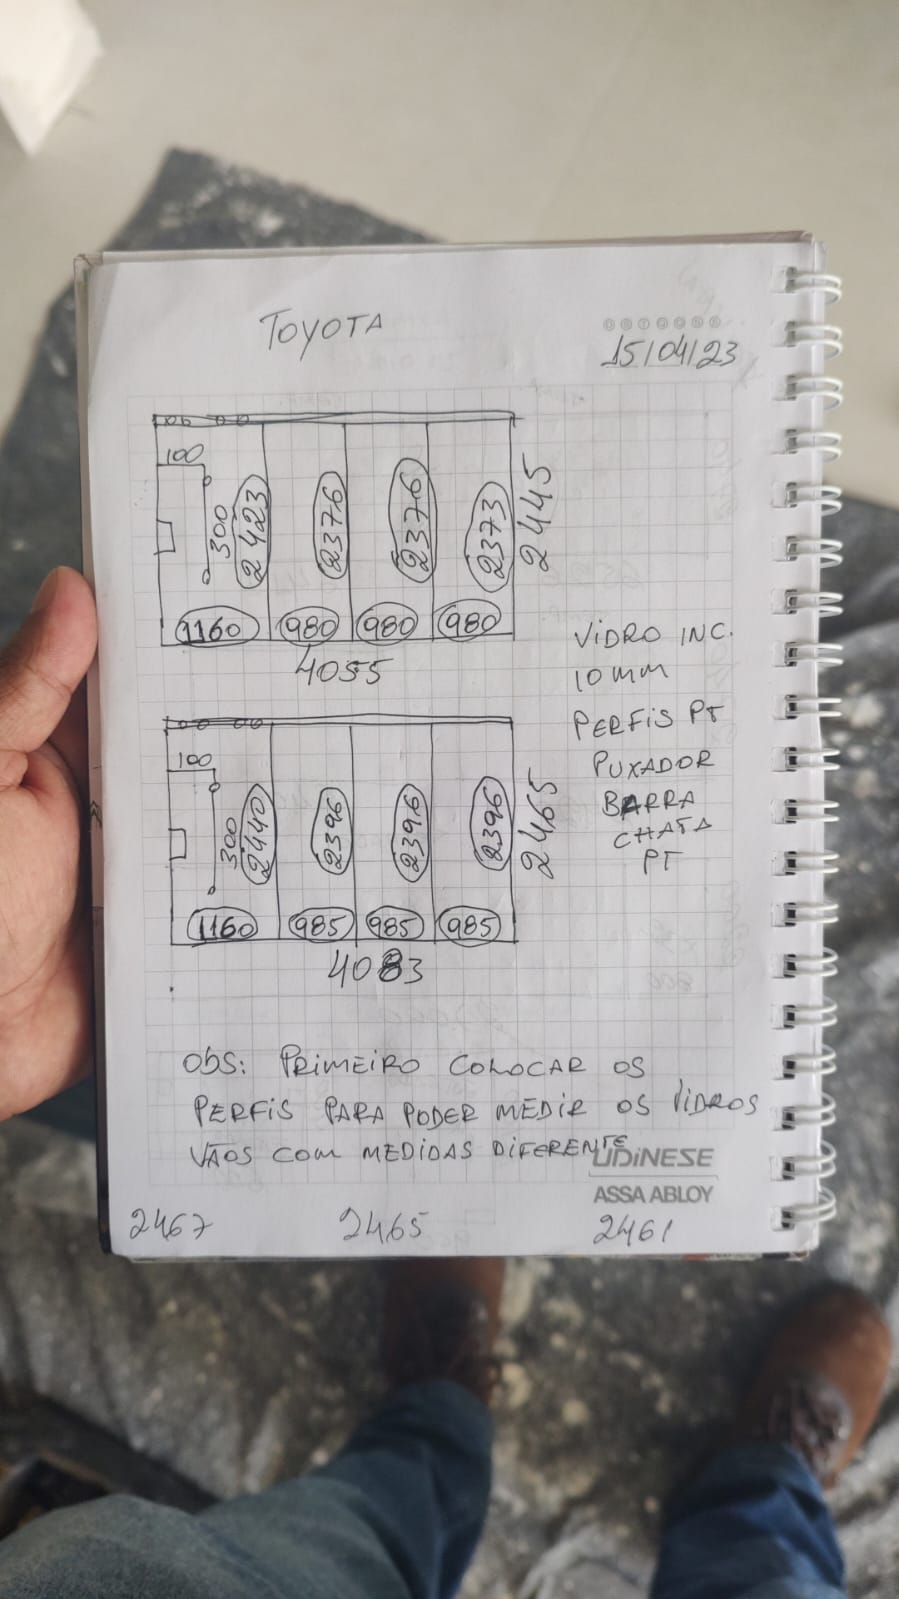 TOYOTA
15/04/23
100
300
2423
2376
2376
2373
2445
1160
980
980
980
4055
VIDRO INC.
10 MM
PERFIS PT
PUXADOR
BARRA
CHATA
PT
100
300
2440
2396
2396
2396
2465
1160
985
985
985
4083
Obs: PRIMEIRO COLOCAR OS
PERFIS PARA PODER MEDIR OS VIDROS
VÃOS COM MEDIDAS DIFERENTE
UDINESE
ASSA ABLOY
2467 2465 2461